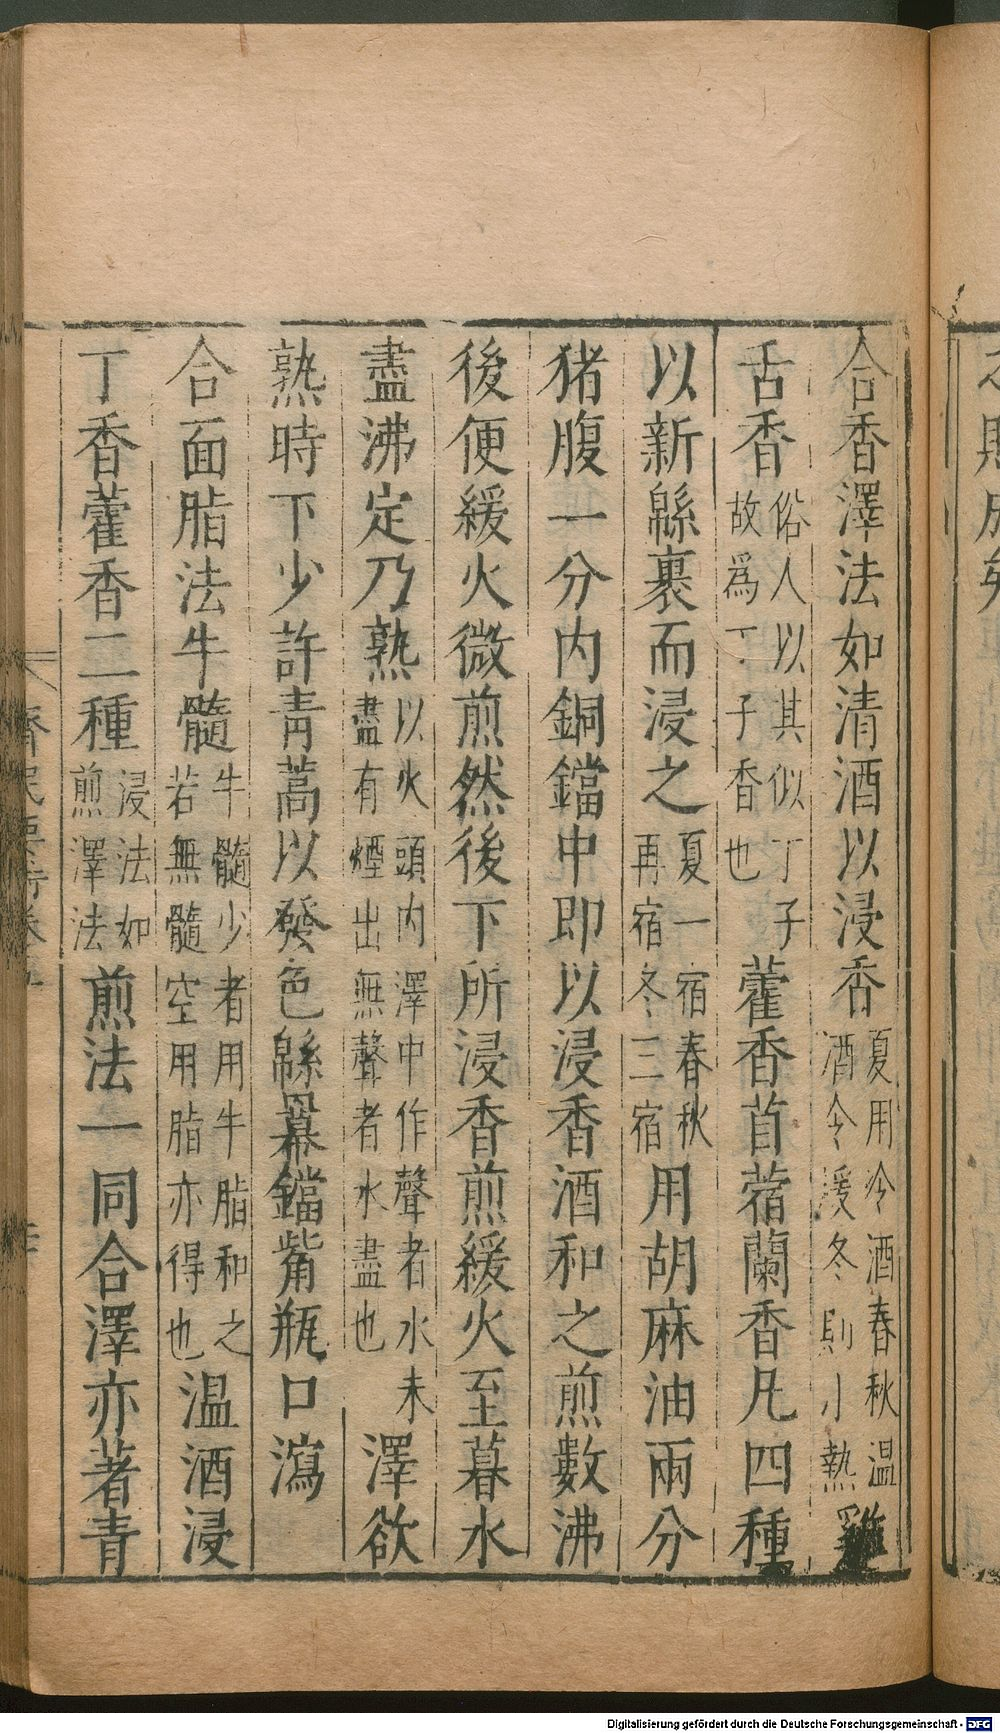 合香澤法如清酒以浸香夏用冷酒春秋温酒令煖冬則小熱雞
舌香俗人以其似丁子故爲丁子香也藿香苜蓿蘭香凡四種
以新緜裹而浸之夏一宿春秋再宿冬三宿用胡麻油兩分
猪腹一分内銅鐺中即以浸香酒和之煎數沸
後便緩火微煎然後下所浸香煎緩火至暮水
盡沸定乃熟以火頭内澤中作聲者水未盡有煙出無聲者水盡也澤欲
熟時下少許青蒿以發色緜羃鐺觜瓶口瀉
合面脂法牛髓牛髓少者用牛脂和之若無髓空用脂亦得也温酒浸
丁香藿香二種浸法如煎澤法煎法一同合澤亦著青
齊民要術卷五
Digitalisierung gefördert durch die Deutsche Forschungsgemeinschaft - DFG